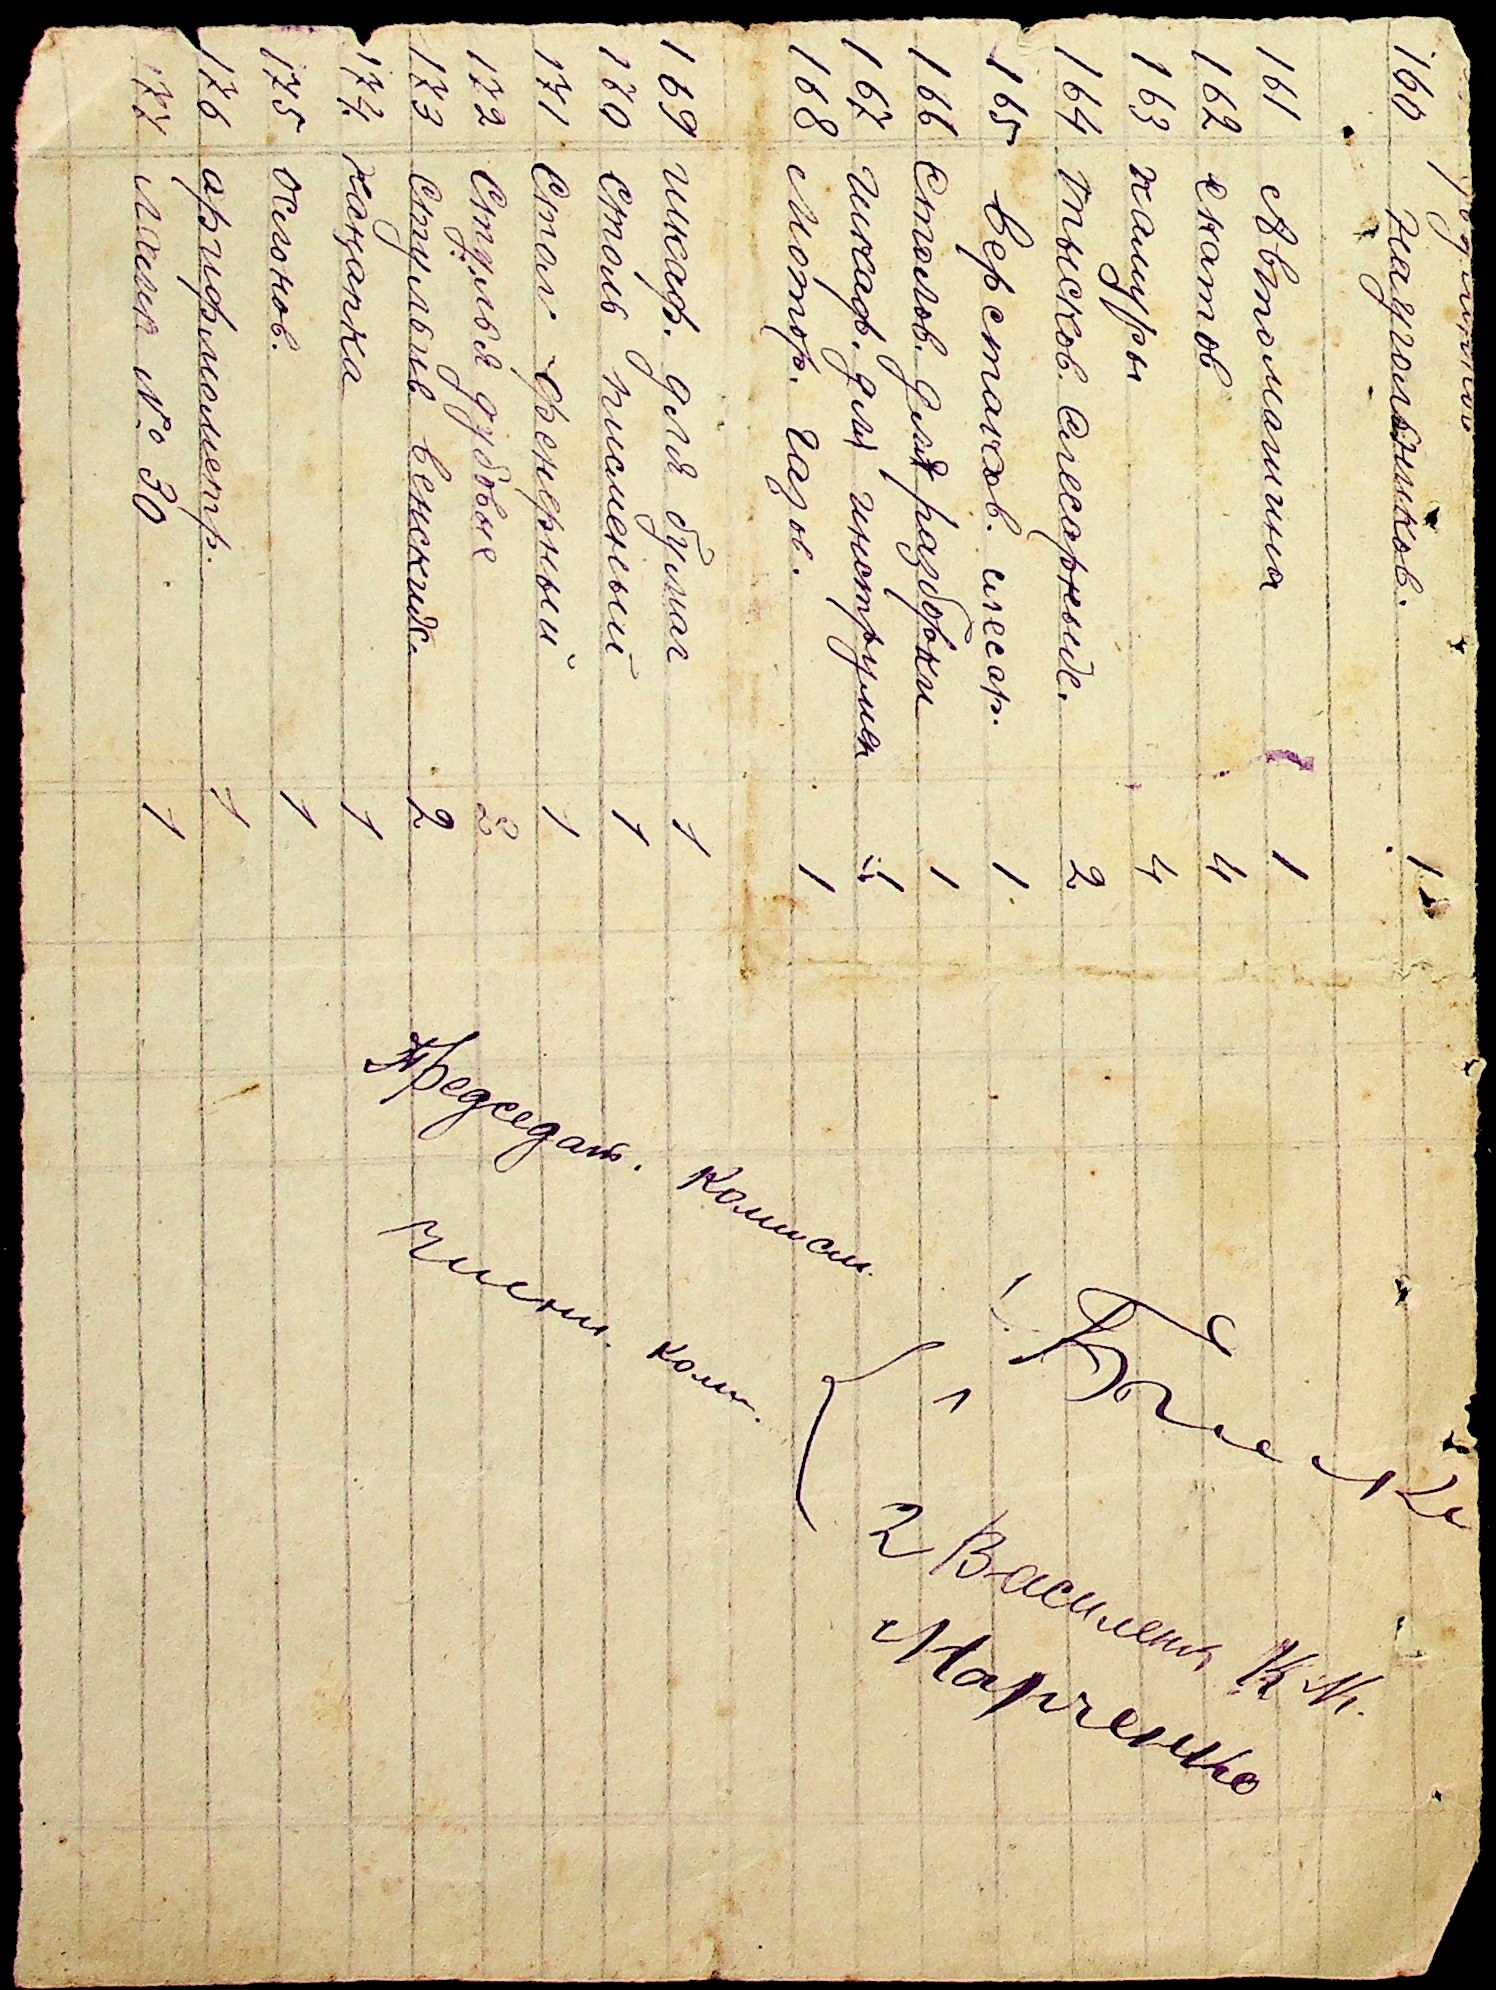 160 наугольников. 1
161 Автомашина 1
162 скатов 4
163 камеры 4
164 тысков слесарных. 2
165 верстаков. слесар. 1
166 Столов. для разборки 1
167 шкаф. для инструмен 1
168 Мотор. газов. 1
169 шкаф. для бумаг 1
170 столь письменый 1
171 Стол фенерный 1
172 Стулья дубовые 2
173 Стульев венских. 2
174 1
175 1
176 арифмометр. 1
177 № 30 1
Председат. комисии.
Члены. ком. { 1
2 Василенк К М.
Марченко